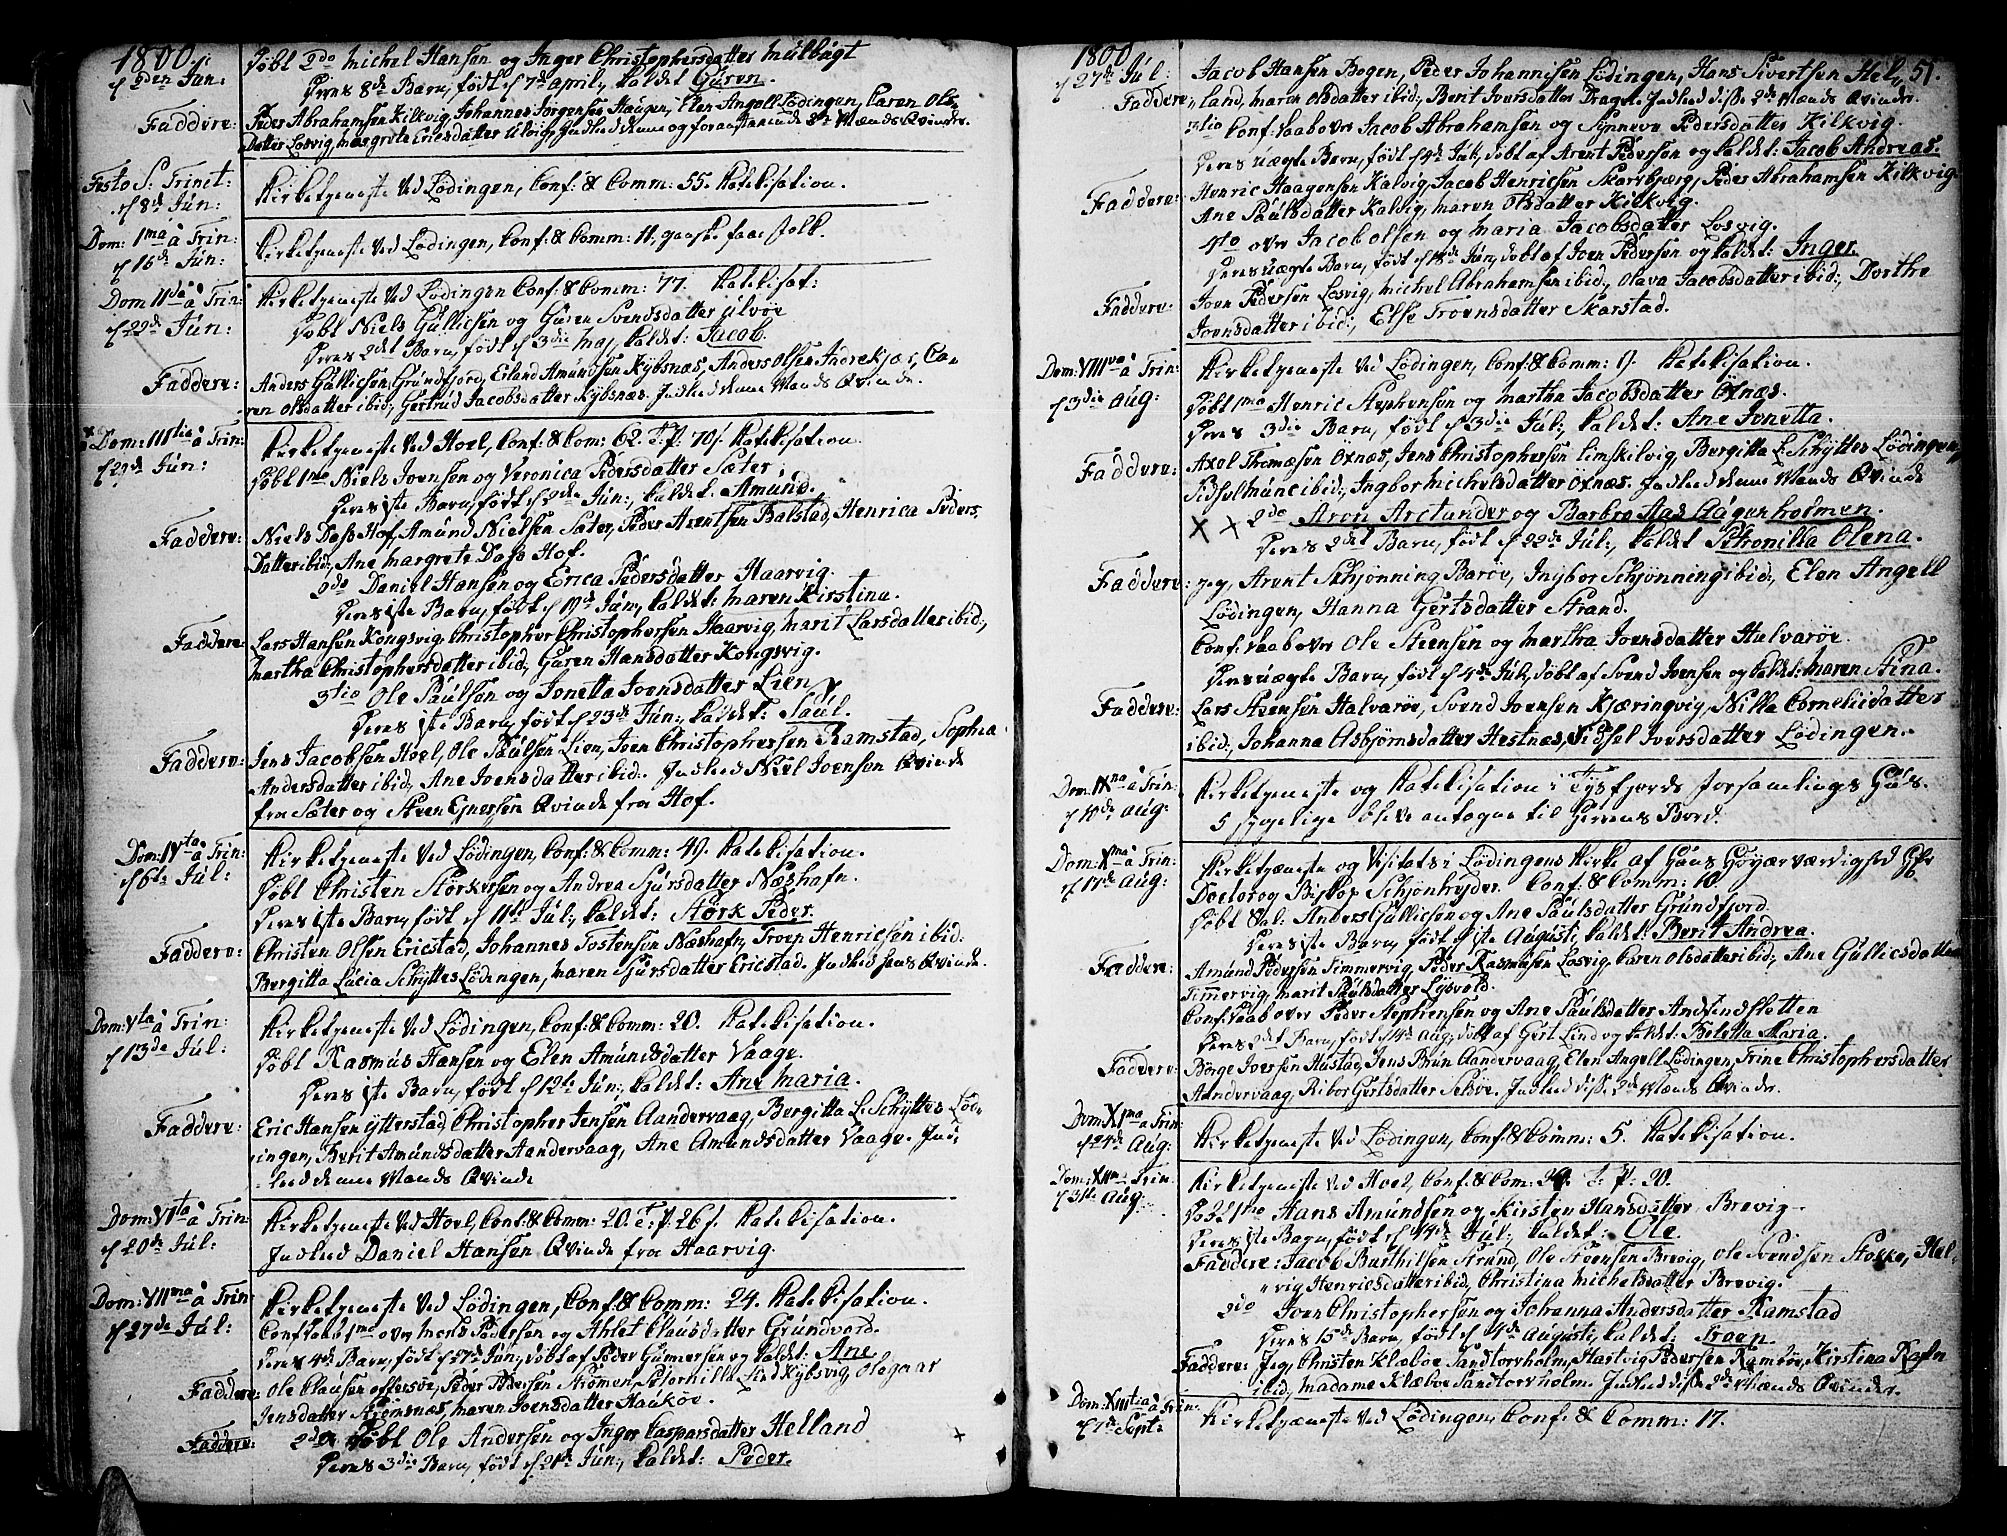 1800.
d 2den Jun:
Døbt 2do Michel Hansen og Inger Christophersdatter Mulbugt
Deres 8de Barn, født d 7de April, kaldet Guren.
Faddere: Peder Abrahamsen Kilkvig, Johannes Jörgensen Haugen, Elen Angell Lödingen, Caren Ols-
datter Losvig, Margrete Ericsdatter Ulvig, Indleed denne og foranstaaende 2de Mænds Qvinder.
Festo S: Trinit:
d 8de Jun:
Kirketjeneste ved Lödingen, Conf: & Comm: 55. Katekisation.
Dom: 1ma à Trin:
d 15de Jun:
Kirketjeneste ved Lödingen, Conf: & Comm: 11, ganske faae Folk.
Dom IIda à Trin:
d 22de Jun:
Kirketjeneste ved Lödingen Conf: & Comm: 77. Katekisat:
Døbt Niels Gullicsen og Guren Svendsdatter Ulvöe
Deres 2det Barn, født d 3die Maj, kaldet: Jacob.
Faddere: Anders Gullicsen Grundfjord, Erland Amundsen Kybsnæs, Anders Olsen Indrekjær, Ca-
ren Olsdatter ibid:, Gertrud Jacobsdatter Kybsnæs. Indleed denne Mands Qvinde.
Dom: IIItia à Trin:
d 29de Jun:
Kirketjeneste ved Hoel, Conf: & Com: 62. T. P: 70. Katekisation.
Døbt 1mo Niels Joensen og Veronica Pedersdatter Sæter,
Deres 1ste Barn, født d 2den Jun:, kaldet: Amund.
Faddere: Niels Dass Hof, Amund Nielsen Sæter, Peder Arentsen Balstad, Henrica Peders-
datter ibid:, Ane Margrete Dass Hof.
2do Daniel Hansen og Erica Pedersdatter Haarvig.
Deres 1ste Barn, født d 19de Jun:, kaldet: Maren Kirstina.
Faddere: Lars Hansen Kongsvig, Christopher Christophersen Haarvig, Marit Larsdatter ibid:,
Martha Christophersdatter ibid:, Guren Hansdatter Kongsvig.
3tio Ole Paulsen og Jonetta Joensdatter Lien
Deres 1ste Barn, født d 23de Jun:, kaldet: Paul.
Faddere: Jens Jacobsen Hoel, Ole Paulsen Lien, Joen Christophersen Ramstad, Sophia
Andersdatter ibid:, Ane Joensdatter ibid:. Indleed Niel Joensen Qvinde
fra Sæter og Steen Ejnersen Qvinde fra Hof.
Dom: IVta à Trin:
d 6te Jul:
Kirketjeneste ved Lödingen, Conf: & Comm: 49. Katekisation.
Døbt Christen Størkersen og Andrea Sjursdatter Næshafn.
Deres 1ste Barn, født d 11te Jul:, kaldet: Størk Peder.
Faddere: Christen Olsen Ericstad, Johannes Tostensen Næshafn, Troen Henricsen ibid:
Bergitta Lucia Schyttes Lödingen, Maren Sjursdatter Ericstad. Indleed hans Qvinde.
Dom: Vta à Trin:
d 13de Jul:
Kirketjeneste ved Lödingen, Conf: & Comm: 20. Katekisation.
Døbt Rasmus Hansen og Elen Amundsdatter Vaage.
Deres 1ste Barn, født d 12te Jun:, kaldet: Ane Maria.
Faddere: Eric Hansen Ytterstad, Christopher Jensen Aandervaag, Bergitta L. Schyttes Löd-
ingen, Berit Amundsdatter Aandervaag, Ane Amundsdatter Vaage. Ind-
leed denne Mands Qvinde
Dom: VIta à Trin:
d 20de Jul:
Kirketjeneste ved Hoel, Conf: & Comm: 20. T: p. 26. Katekisation.
Indleed Daniel Hansen Qvinde fra Haarvig.
Dom: VIIma à Trin:
d 27de Jul:
Kirketjeneste ved Lödingen, Conf: & Comm: 24. Katekisation.
Conf: Daab 1mo over Mons Pedersen og Ahlet Clausdatter Grundvord.
Deres 4de Barn, født d 7de Jun:, døbt af Peder Gunnersen og kaldet: Ane
Faddere: Ole Clausen Offersöe, Peder Pedersen Strömen, Petornilla Lind Kybsvig, Olegaar
Jensdatter Strömsnæs, Maren Joensdatter Haukøe.
2do Døbt Ole Andersen og Inger Caspersdatter Helland
Deres 3die Barn, født d 21de Jun:, kaldet: Peder.
Faddere:
1800 51.
d 27de Jul:
Faddere: Jacob Hansen Bogen, Peder Johannisen Lödingen, Hans Sivertsen Hel-
land, Maren Olsdatter ibid:, Berit Iversdatter Drage. Indleed disse 2de Mænds Qvinder.
3tio Conf: Daab over Jacob Abrahamsen og Synneve Pedersdatter Kilkvig.
Deres uægte Barn, født d 4de Jul:, døbt af Arent Pedersen og kaldet: Jacob Andreas.
Faddere: Henric Haagensen Kalvig, Jacob Henricsen Skarvbjerg, Peder Abrahamsen Kilkvig
Ane Paulsdatter Kalvig, Maren Olsdatter Kilkvig.
4to over Jacob Olsen og Maria Jacobsdatter Losvig.
Deres uægte Barn, født d 18de Jun, døbt af Joen Pedersen og kaldet: Inger.
Faddere: Joen Pedersen Losvig, Michel Abrahamsen ibid:, Olava Jacobsdatter ibid:, Dorthe
Joensdatter ibid:, Else Troensdatter Skarstad.
Dom: VIIIva à Trin:
d 3die Aug:
Kirketjeneste ved Lödingen, Conf: & Comm: 17. Katekisation.
Døbt 1mo Henric Stephensen og Martha Jacobsdatter Oxnæs.
Deres 3die Barn, født d 3die Jul:, kaldet: Ane Jonetta.
Faddere: Axel Thomæsen Oxnæs, Jens Christophersen Simskilvig, Bergitta L. Schyttes Lödingen,
Sidsel Munc ibid:, Ingbor Michelsdatter Oxnæs. Indleed denne Mands Qvinde
2do Aron Arctander og Barbro Aas Gaasenholmen.
Deres 2det Barn, født d 22de Jul:, kaldet Petronilla Olena.
Faddere: Jeg, Arent Schjönning Baröe, Ingbor Schjönning ibid:, Elen Angell
Lödingen, Hanna Gertsdatter Strand.
Conf: Daab over Ole Steensen og Martha Joensdatter Halvaröe.
Deres uægte Barn, født d 4de Jul:, døbt af Svend Joensen og kaldet: Maren Stina.
Faddere: Lars Steensen Halvaröe, Svend Joensen Kjæringvig, Nilla Corneliidatter
ibid:, Johanna Asbjörnsdatter Hestnæs, Sidsel Iversdatter Lödingen.
Dom: IXna à Trin:
d 10de Aug:
Kirketjeneste og Katekisation i Tysfjords Forsamlings Huus.
5 sygelige bleve antagne til Herrens Bord.
Dom: Xma à Trin:
d 17de Aug:
Kirketjeneste og Visitats i Lödingens Kirke af Hans Höyærværdighed Hr
Doctor og Biskop Schjönheyder. Conf: & Comm: 10.
Døbt Sal: Anders Gullicsen og Ane Paulsdatter Grundfjord.
Deres 1ste Barn, født d 1ste Augusti, kaldet: Berit Andrea.
Faddere: Amund Pedersen Timmervig, Peder Rasmusen Losvig, Caren Olsdatter ibid:, Ane Gullicsdatter
Timmervig, Marit Paulsdatter Lysvold.
Conf: Daab over Peder Stephensen og Ane Paulsdatter Andfindsletten
Deres 2det Barn, født d 14de Aug:, døbt af Gert Lind og kaldet: Beletta Maria.
Faddere: Börge Joersen Hustad, Jens Brun Aandervaag, Elen Angell Lödingen, Trine Christophersdatter
Aandervaag, Ribor Gertsdatter Selsöe. Indleed disse 2de Mænds Qvinder.
Dom: XIma à Trin:
d 24de Aug:
Kirketjeneste ved Lödingen, Conf: & Comm: 5. Katekisation.
Dom: XIIma Trin.
d 31te Aug:
Kirketjeneste ved Hoel, Conf: & Com: 29. T: P: 20.
Døbt 1mo Hans Amundsen og Kirsten Hansdatter Brevig.
Deres 1ste Barn, født d 14de Jul:, kaldet: Ole.
Faddere: Jacob Barthilsen Strand, Ole Steensen Brevig, Ole Svendsen Stokke, Hel-
vig Henricsdatter ibid, Christina Michelsdatter Brevig.
2do Joen Christophersen og Johanna Andersdatter Ramstad
Deres 15de Barn, født d 4de Augusti, kaldet: Troen.
Faddere: Jeg, Christen Klæboe Sandtorrholm, Hastvig Pedersen Ramböe, Kirstina Rafn
ibid, Madame Klæboe Sandtorrholm. Indleed disse 2de Mænds Qvinder.
Dom: XIIItia à Trin:
d 7de Sept:
Kirketjeneste ved Lödingen, Conf: & Comm: 17.